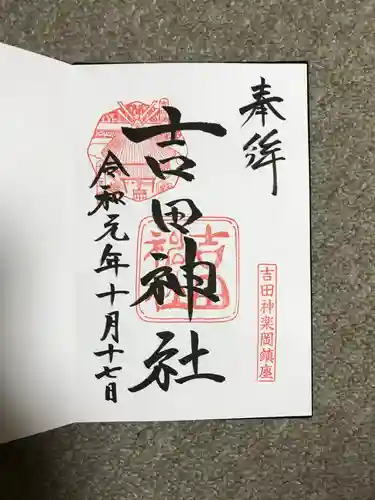 奉拝
吉田神楽岡鎮座
吉田神社
令和元年十月十七日